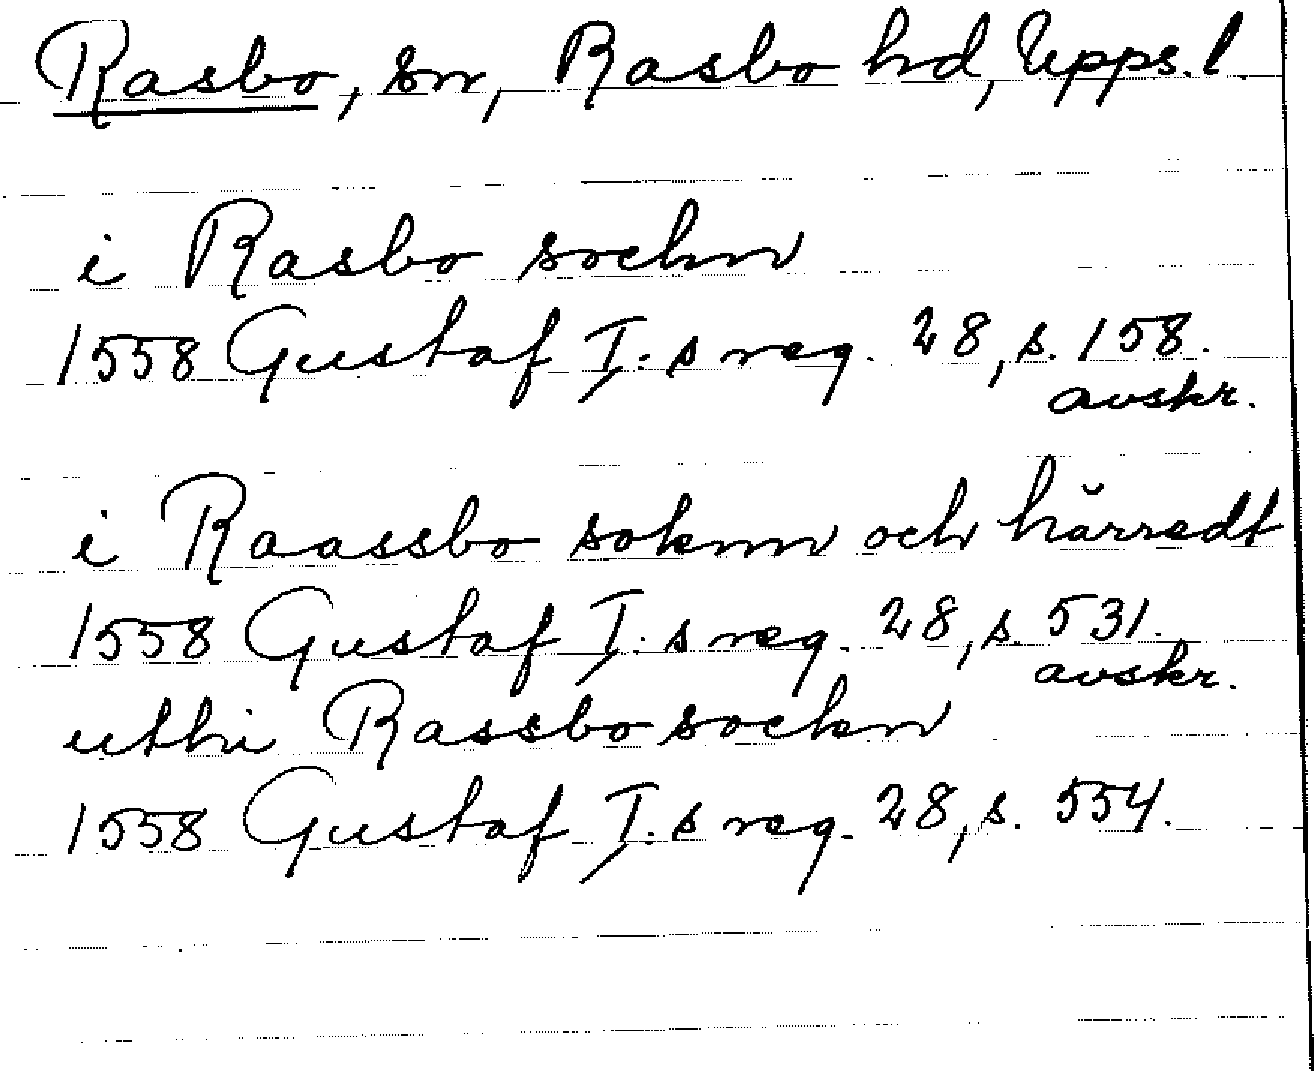 Rasbo, sn, Rasbo hd, Upps. l.
i Rasbo sochn
1558 Gustaf I:s reg. 28, s. 158.
avskr.
i Raassbo soknn och härredt
1558 Gustaf I:s reg. 28, s. 531.
avskr.
utthi Rassbo sockn
1558 Gustaf I:s reg. 28, s. 554.